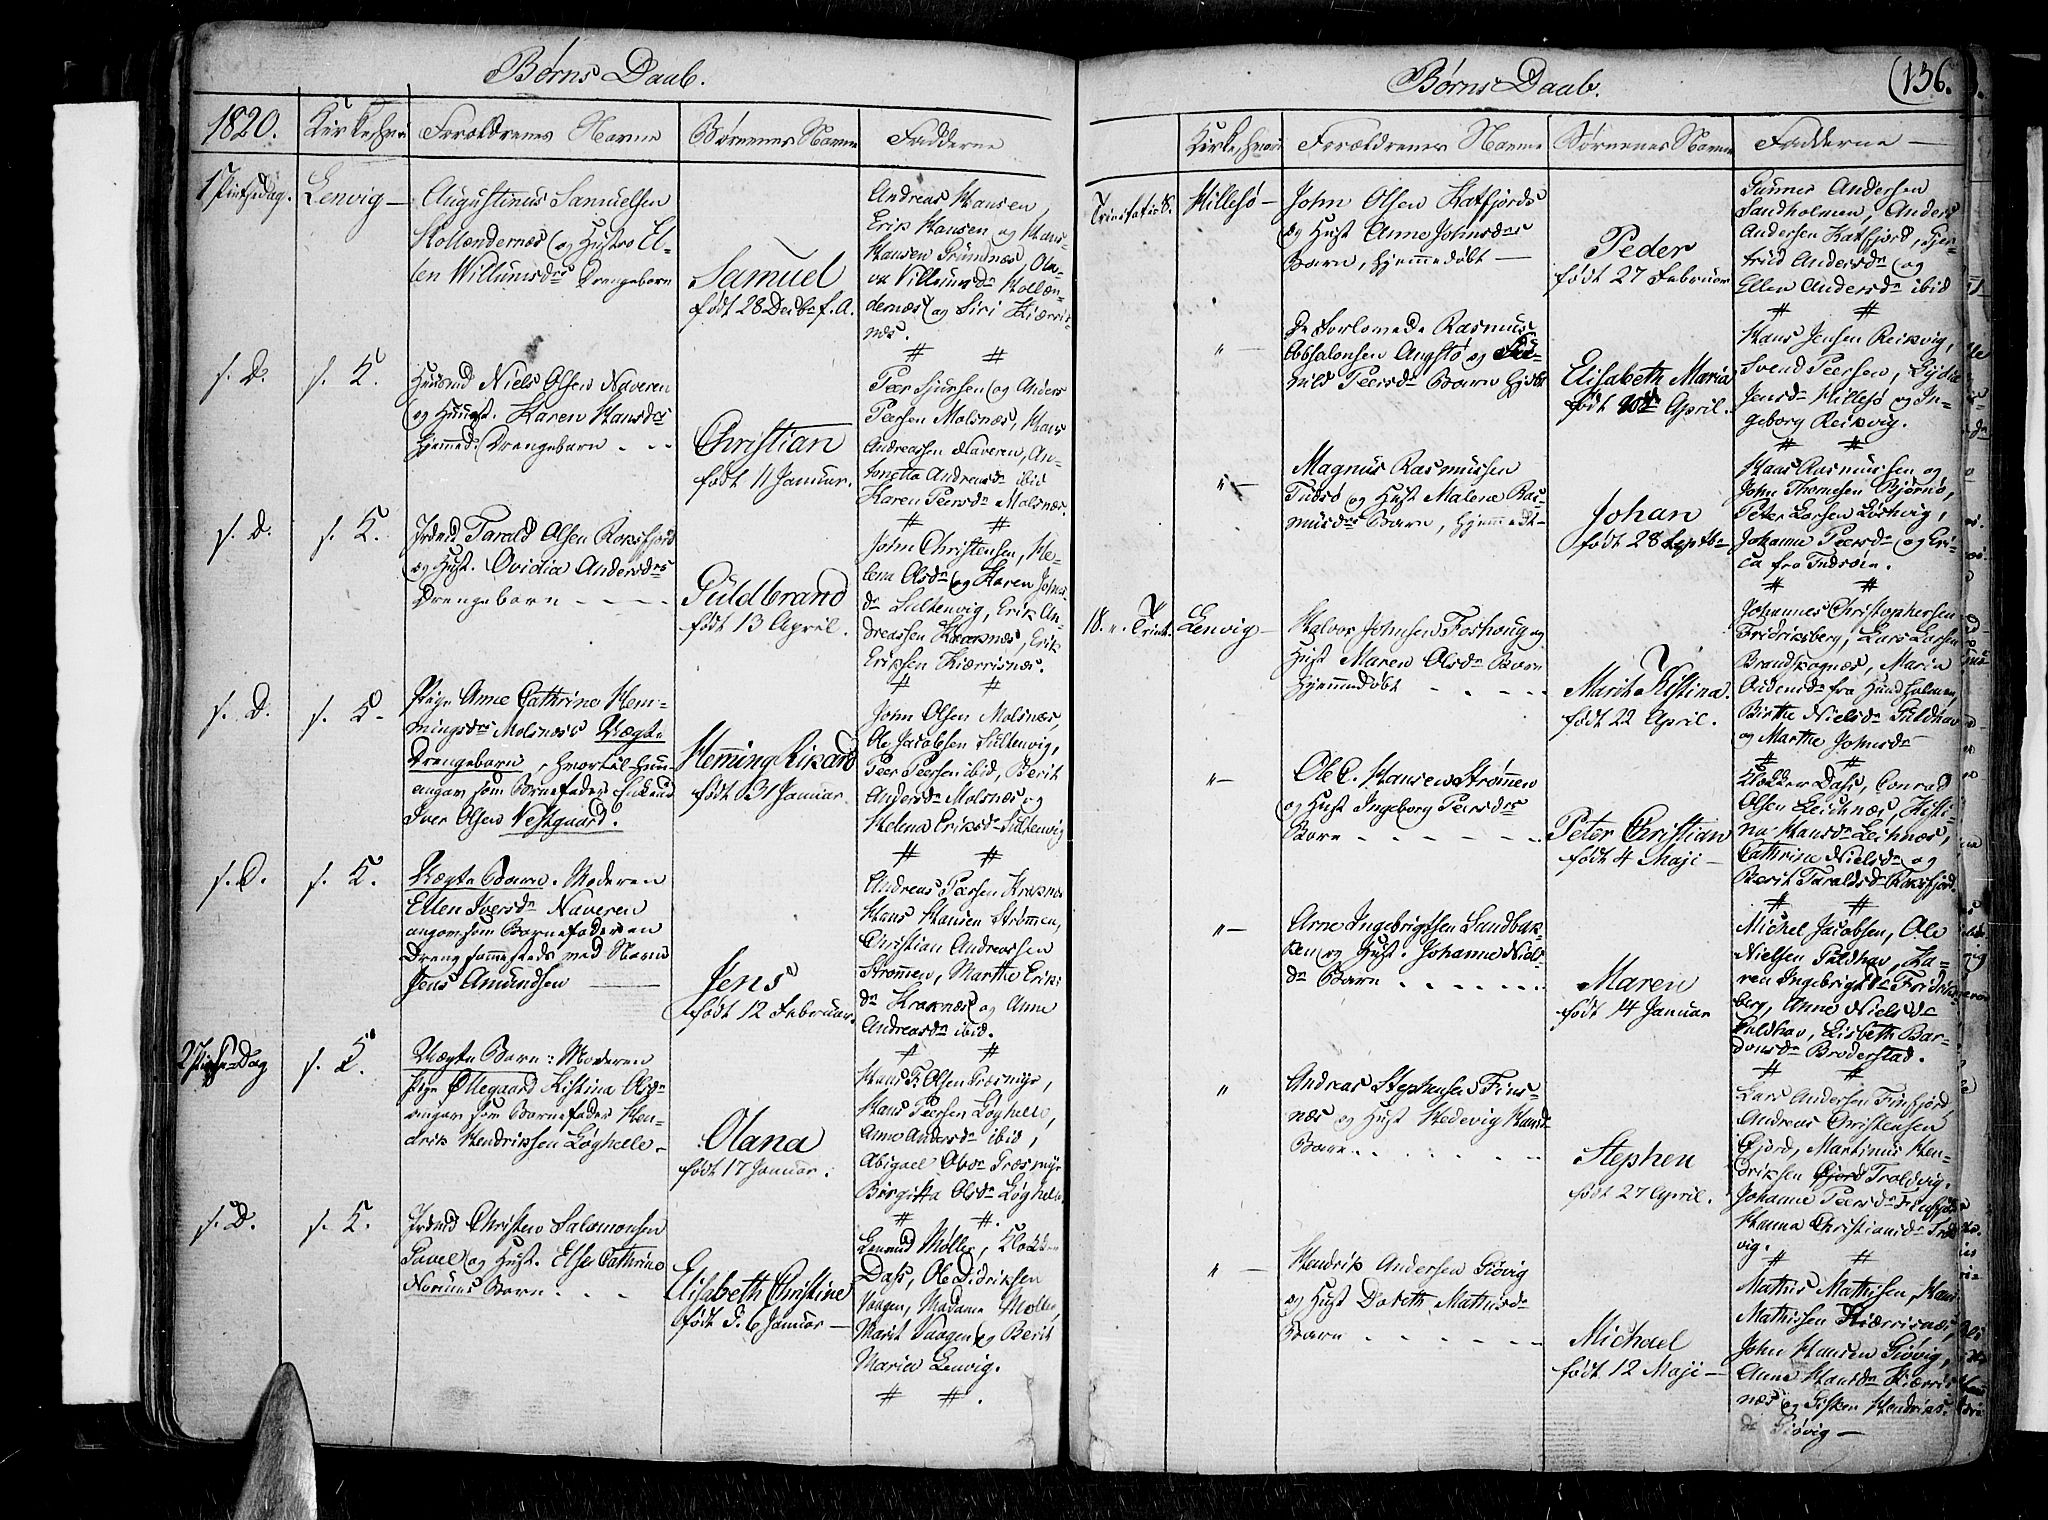 Børns Daab.
1820.
Kirkesogn
Forældrenes Navne
Børnenes Navne
Fadderne
1 Pintsedag.
Lenvig —
Augustinus Samuelsen
Kollændernæs og Hustro El-
len Willumsdr Drengebarn
Samuel
født 28 Decbr f. A.
Andreas Hansen,
Erik Hansen og Hans
Hansen Grundnæs, Ole-
va Villumsdr Kollæn-
dernæs og Siri Kiærris-
næs.
s. D.
s. K.
Huusmd Niels Olsen Naveren
og Huust. Karen Hansdr
Hjemmed: Drengebarn . - -
Christian
født 11 Januar.
Peer Siursen og Anders
Peersen Molsnæs, Hans
Andreassen Naveren, An-
tonetta Andreasdr ibid
Karen Peersdr Molsnæs
s. D.
s. K.
Inderst Tarald Olsen Roksfjord
og Hust. Ovidia Andersdr
Drengebarn - - - -
Guldbrand
født 13 April.
John Christensen, He-
lena Olsdr og Karen Johns-
dr Sultenvig, Erik An-
dreassen Kraknæs, Erik
Eriksen Kiærrisnæs.
s. D.
s. K.
Pige Anne Cathrine Hem-
mingsdr Molsnæs Uægte
Drengebarn, hvortil hun
angav som Barnefader Enkemd
Iver Olsen Vestgaard.
Hemming Rikard
født 31 Januar.
John Olsen Molsnæs,
Ole Jacobsen Sultenvig,
Peer Peersen ibid, Berit
Andersdr Molsnæs og
Helena Eriksdr Sultenvig
s. D.
s. K.
Uægte Barn. Moderen
Ellen Iversdr Naveren
angav som Barnefader en
Dreng sammesteds med Navn
Jens Amundsen
Jens
født 12 Februar.
Andreas Peersen Kraknæs
Hans Hansen Strømmen,
Christian Andreassen
Strømmen, Marthe Eriks
dr Kraknæs og Anne
Andreasdr ibid.
2 Pintse-Dag
s. K.
Uægte Barn: Moderen
Pige Øllegaard Kistina Olsdr
angav som Barnefader Hen-
drik Hendriksen Løghelle -
Olana
født 17 Januar.
Hans P. Olsen Græsmyr,
Hans Peersen Løghelle,
Anne Andersdr ibid,
Abigael Olsdr Græsmyr
Birgitta Olsdr Løghelle
s. D.
s. K.
Christen Salomonsen
Gavel og Hust. Else Cathrine
Barn . . .
Elisabeth Christine
født d. 6 Januar —
Møller, Klokker
Dass, Ole Didriksen
Vaagen, Madame Møller,
Marit Vaagen og Berit
Maria Lenvig.
Børns Daab.
(136.
Kirkesogn
Forældrenes Navne
Børnenes Navne
Fadderne —
Trinitatis S.
Hillesø —
John Olsen Katfjords
og Hust Anne Johnsdr
Barn, hjemmedøbt —
Peder
født 27 Februar
Gunner Andersen
Sandholmen, Anders
Andersen Katfjord, Gjer-
trud Andersdr og
Ellen Andersdr ibid
" —
De Forlovede Rasmus
Absalonsen Angstø og
Peersdr Barn Hjdbt
Elisabeth Maria
født April.
Hans Jensen Reiksvig,
Svend Peersen, Lydia
Jensdr Hillesø og In-
geborg Reiksvig.
" —
Magnus Rasmussen
Tudsø og Hust Malene Ras-
musdr Barn, hjemmedbt -
Johan
født 28 Septbr
Hans Rasmussen og
John Thomesen Bjørnø,
Peter Larsen Løshvig,
Johanne Peersdr og Eri-
ca fra Tudsøen.
18. e. Trint.
Lenvig —
Halvor Johnsen Foshoug og
Hust Maren Olsdr Barn
Hjemmedøbt . . . .
Marit Kistina.
født 22 April.
Johannes Christophersen
Fridriksberg, Lars Larsen
Brandskognæs, Maria
fra Hundholmen,
Birthe Nielsdr Guldhav
og Marthe Johnsdr
" —
Ole C. Hansen Strømmen
og Hust Ingeborg Peersdr
Barn - - - - - - -
Peter Christian
født 4 Maji —
Klokker Dass, Conrad
Olsen Leiknæs, Kisti-
na Hansdr Leiknæs,
Cathrina Nielsdr og
Berit Taraldsdr Roksfjord
" —
Arne Ingebrigtsen Sandbak-
ken og Hust. Johanne Niels-
dr Barn . . . . . . .
Maren
født 14 Januar
Michel Jacobsen, Ole
Nielsen Guldhav, Ka-
ren Ingebrigtsdr Fridriks-
berg, Anne Nielsdr
Guldhav, Lisbeth Bar-
donsdr Broderstad.
"
Andreas Stephensen Fins-
næs og Hust Hedevig Hansd
Barn . . . . . . .
Stephen
født 27 April.
Lars Andersen Finfjord
Andreas Christensen
Gjord, Martinus Hen-
driksen Gjord Troldvig.
Johanne Peersdr Finfjord
Hanna Christiansdr Trold-
vig.
" —
Hendrik Andersen Giøvig
og Hust Doreth Mathisdr
Barn . . . . . . .
Michael
født 12 Maji —
Mathis Mathisen, Hans
Mathissen Kiærrisnæs,
John Hansen Giøvig,
Anne Hansdr Kiærris-
næs og Sisken Hendriks-
dr Giøvig —